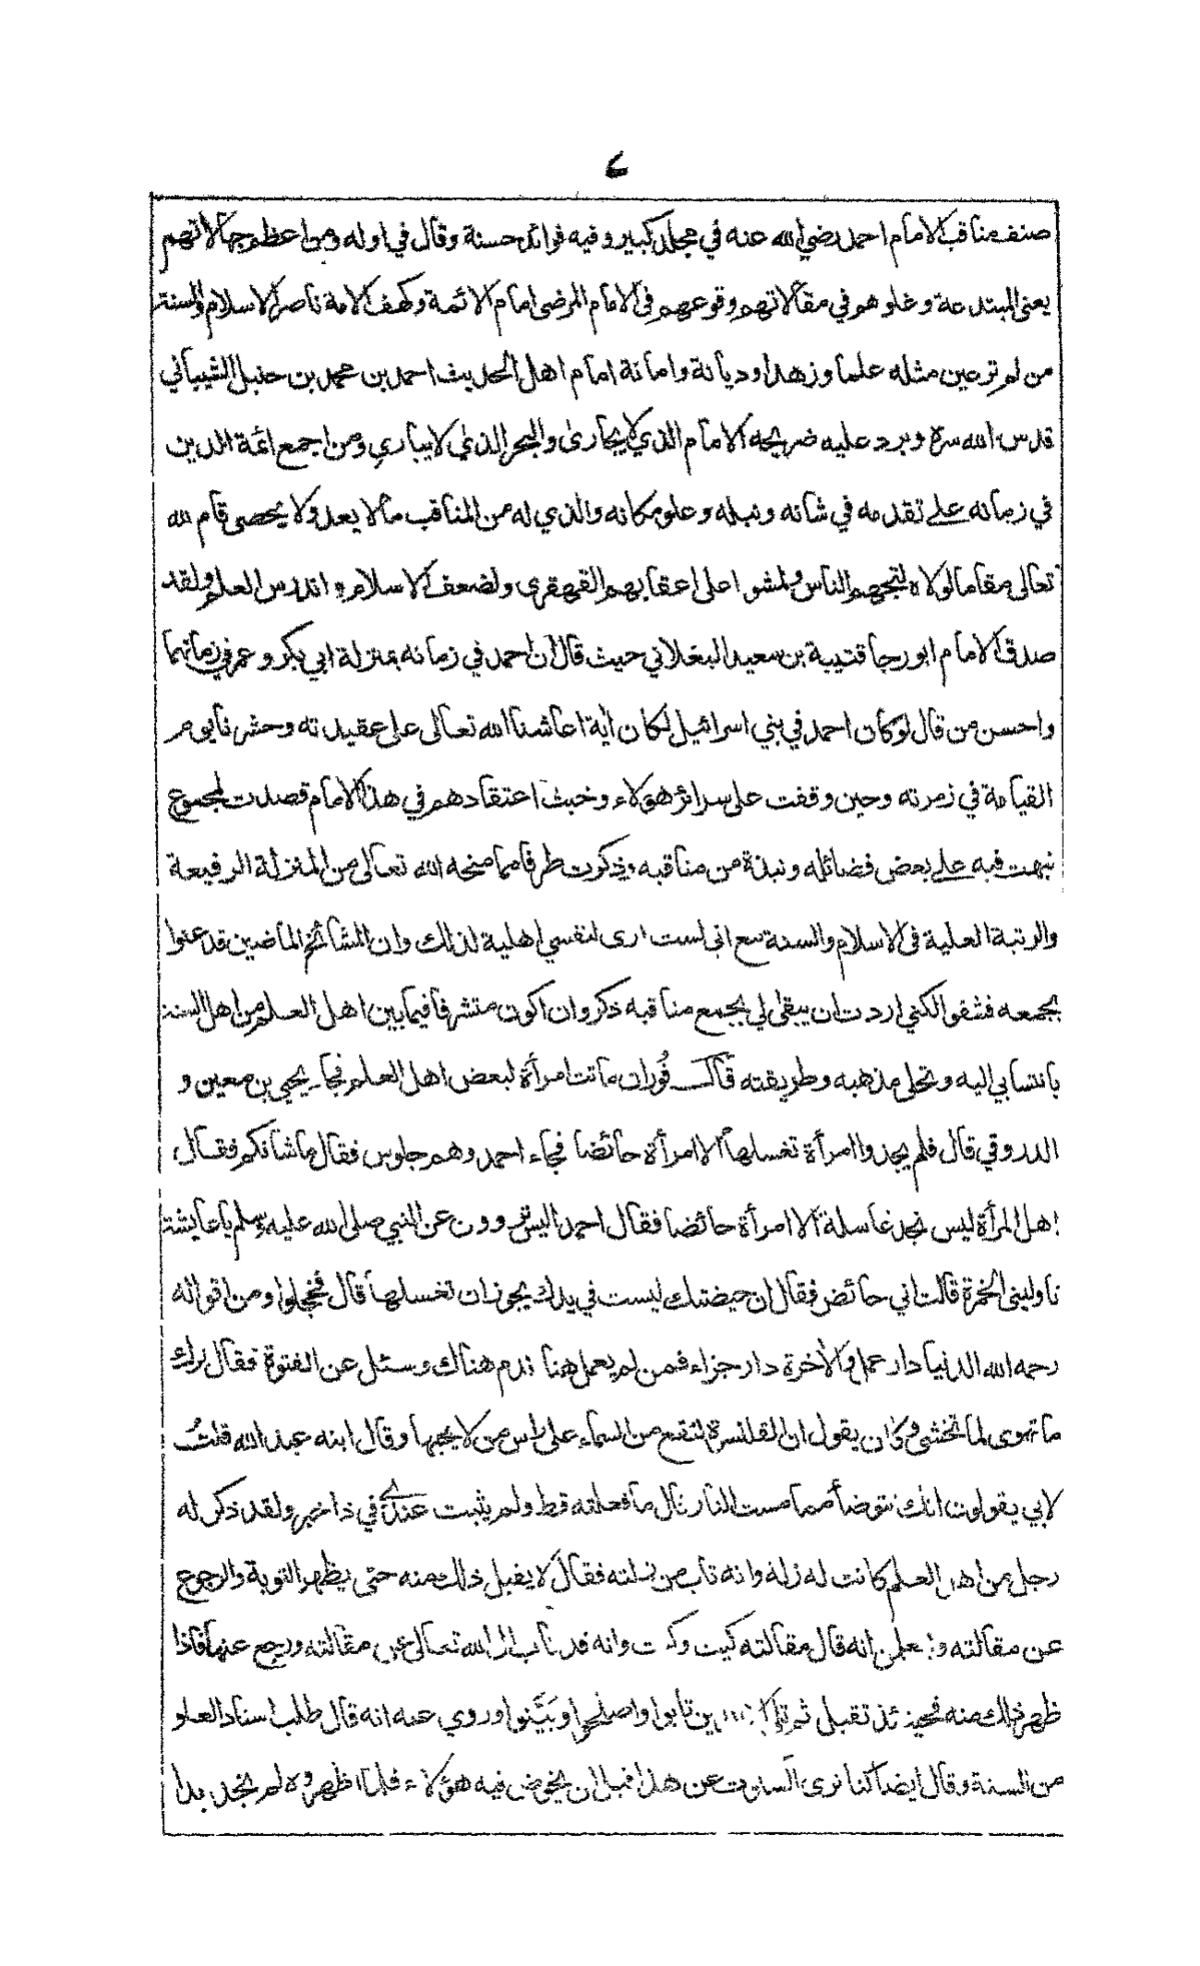 صنف مناقب الامام احمد رضي الله عنه في مجلد كبير وفيه فوائد حسنة وقال في اوله ومن اعظم جهالاتهم
يعني المبتدعة وغلوهم في مقالاتهم وقوعهم في الامام المرضى امام الائمة وكهف الامة ناصر الاسلام والسنة
من لم تر عين مثله علما وزهدا وديانة وامانة امام اهل الحديث احمد بن محمد بن حنبل الشيباني
قدس الله سره وبرد عليه ضريحه الامام الذي لا يجارى والبحر الذي لا يباري ومن اجمع ائمة الدين
في زمانه على تقدمه في شانه ونبله وعلو مكانه والذي له من المناقب ما لا يعد ولا يحصى قام لله
تعالى مقاما لولاه لتجهم الناس ولمشوا على اعقابهم القهقرى ولضعف الاسلام واندرس العلم ولقد
صدق الامام ابو رجا قتيبة بن سعيد البغلاني حيث قال ان احمد في زمانه بمنزلة ابي بكر وعمر في زمانهما
واحسن من قال لو كان احمد في بني اسرائيل لكان اية اعاشنا الله تعالى على عقيدته وحشرنا يوم
القيامة في زمرته وحين وقفت على سرائر هؤلاء وخبث اعتقادهم في هذا الامام قصدت لمجموع
نبهت فيه على بعض فضائله ونبذة من مناقبه وذكرت طرفا مما منحه الله تعالى من المنزلة الرفيعة
والرتبة العلية في الاسلام والسنة مع اني لست ارى لنفسي اهلية لذلك وان المشائخ الماضين قد عنوا
بجمعه فشفوا لكني اردت ان يبقى لي بجمع مناقبه ذكر وان اكون متشرفا فيما بين اهل العلم من اهل السنة
بانتسابي اليه وتحلى مذهبه وطريقته قال فُوران ماتت امرأة لبعض اهل العلم فجاء يحيى بن معين و
الدروقي قال فلم يجدوا امرأة تغسلها الا امرأة حائضا فجاء احمد وهم جلوس فقال ما شانكم فقال
اهل المرأة ليس نجد غاسلة الا امرأة حائضا فقال احمد اليس تروون عن النبي صلى الله عليه وسلم يا عايشة
ناوليني الخمرة قالت اني حائض فقال ان حيضتك ليست في يدك يجوز ان تغسلها قال فخجلوا ومن اقواله
رحمه الله الدنيا دار عمل والآخرة دار جزاء فمن لم يعمل هنا ندم هناك وسئل عن الفتوة فقال ترك
ما تهوى لما تخشى وكان يقول ان القلنسوة لتقع من السماء على راس من لا يحبها وقال ابنه عبد الله قلتُ
لابي يقولون انك تتوضأ مما مست النار قال ما فعلته قط ولم يثبت عندي في ذا خبر ولقد ذكر له
رجل من اهل العلم كانت له زلة وانه تاب من زلته فقال لا يقبل ذلك منه حتى يظهر التوبة والرجوع
عن مقالته وليعلمن انه قال مقالته كيت وكيت وانه قد تاب الى الله تعالى عن مقالته ورجع عنها فاذا
ظهر ذلك منه فحينئذ تقبل ثم تلا الا الذين تابوا واصلحوا وبَيَّنوا وروي عنه انه قال طلب اسناد العلو
من السنة وقال ايضا كنا نرى السكوت عن هذا قبل ان يخوض فيه هؤلاء فلما اظهروه لم نجد بدا